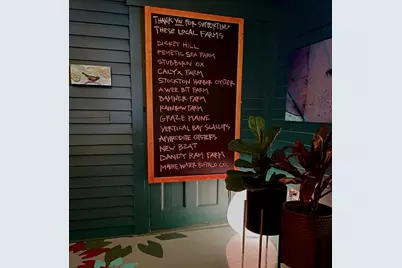 THANK YOU FOR SUPPORTING
THESE LOCAL FARMS
DICKEY HILL
PEMETIC SEA FARM
STUBBORN OX
CALYX FARM
STOCKTON HARBOR OYSTER
A WEE BIT FARM
BAHNER FARM
RAINBOW FARM
GRAZE MAINE
VERTICAL BAY SCALLOPS
APHRODITE OYSTERS
NEW BEAT
DANDY RAM FARM
MAINE WATER BUFFALO CO.